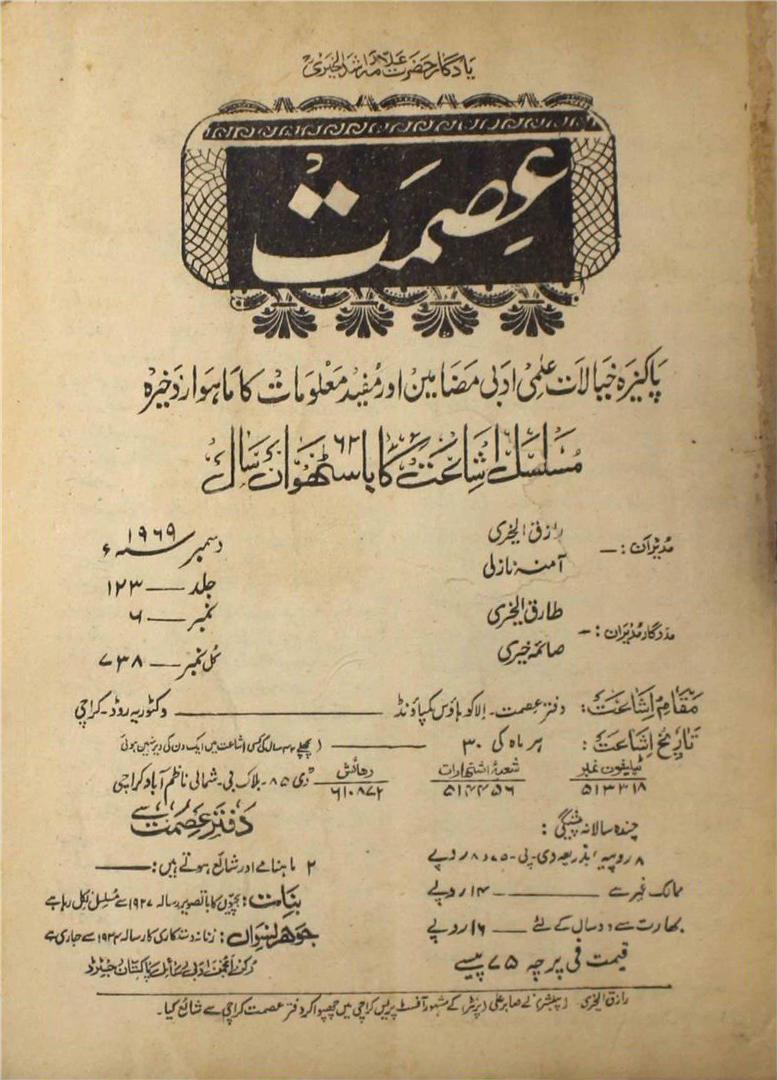 یادگار حضرت علامہ راشد الخیری
عصمت
پاکیزہ خیالات علمی ادبی مضامین اور مفید معلومات کا ماہوار ذخیرہ
مسلسل اشاعت کا باسٹھواں ۶۲ سال
مدیران :— رازق الخیری
آمنہ نازلی
مددگار مدیران :— طارق الخیری
صائمہ خیری
دسمبر ۱۹۶۹ء
جلد — ۱۲۳
نمبر — ۶
کل نمبر — ۷۳۸
مقام اشاعت : دفتر عصمت ۔ الاکو ہاؤس کمپاؤنڈ — وکٹوریہ روڈ ۔ کراچی
تاریخ اشاعت : ہر ماہ کی ۳۰ — ( پچھلے ۳۴ سال کی کسی اشاعت میں ایک دن کی دیر نہیں ہوئی
ٹیلیفون نمبر ۵۱۳۳۱۸ شعبۂ اشتہارات ۵۱۴۴۵۶ رھائش ۶۱۰۸۷۲ ڈی ۸۵ ۔ بلاک بی ۔ شمالی ناظم آباد کراچی
چندہ سالانہ پیشگی :
۸ روپیہ ، بذریعہ وی ۔ پی ۷۵ ء ۸ روپے
ممالک غیر سے — ۱۴ روپے
بھارت سے دو سال کے لئے — ۱۶ روپے
قیمت فی پرچہ ۷۵ پیسے
دفتر عصمت سے
۲ ماہنامے اور شائع ہوتے ہیں :—
بنات : بچیوں کا باتصویر رسالہ ۱۹۲۷ سے مسلسل نکل رہا ہے
جوھر نسواں : زنانہ دستکاری کا رسالہ ۱۹۳۴ سے جاری ہے
رکن انجمن ادبی رسائل پاکستان رجسٹرڈ
رازق الخیری ۔ ( پبلشر ) نے صابر علی ( پرنٹر ) کے مشہور آفسٹ پریس کراچی میں چھپوا کر دفتر عصمت کراچی سے شائع کیا ۔